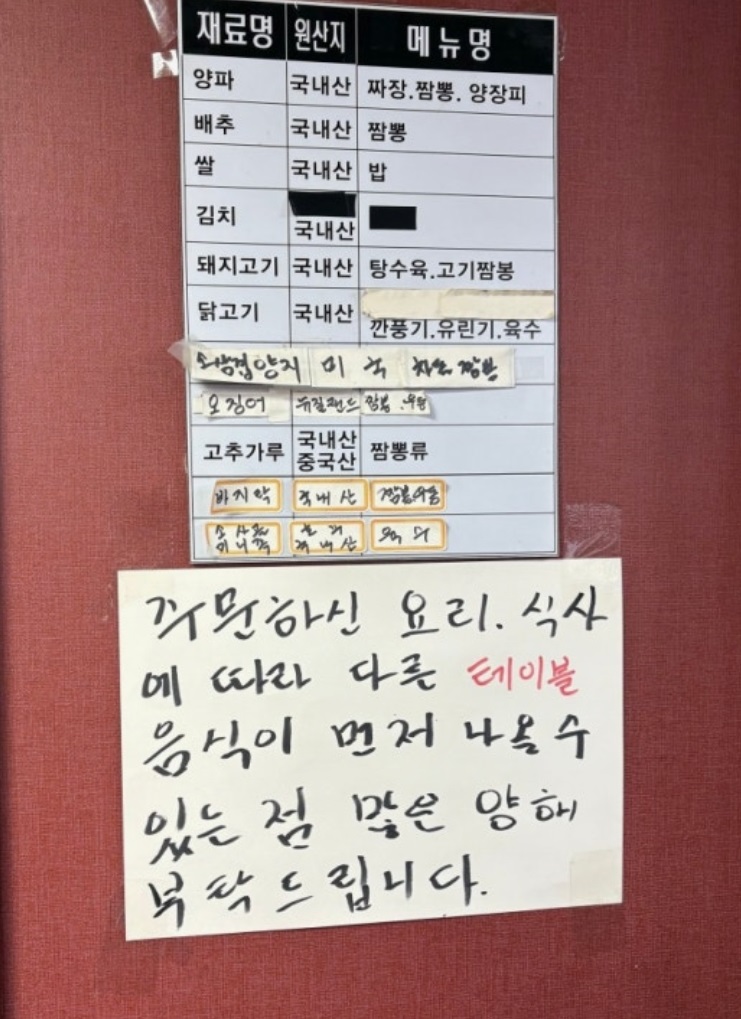 재료명 원산지 메뉴명
양파 국내산 짜장.짬뽕. 양장피
배추 국내산 짬뽕
쌀 국내산 밥
김치 국내산
돼지고기 국내산 탕수육.고기짬봉
닭고기 국내산 깐풍기.유린기.육수
미국
오징어 뉴질랜드 짬뽕.우동
고추가루 국내산 중국산 짬뽕류
바지락 국내산 짬뽕우동
국내산
주문하신 요리. 식사
에 따라 다른 테이블
음식이 먼저 나올수
있는 점 많은 양해
부탁드립니다.